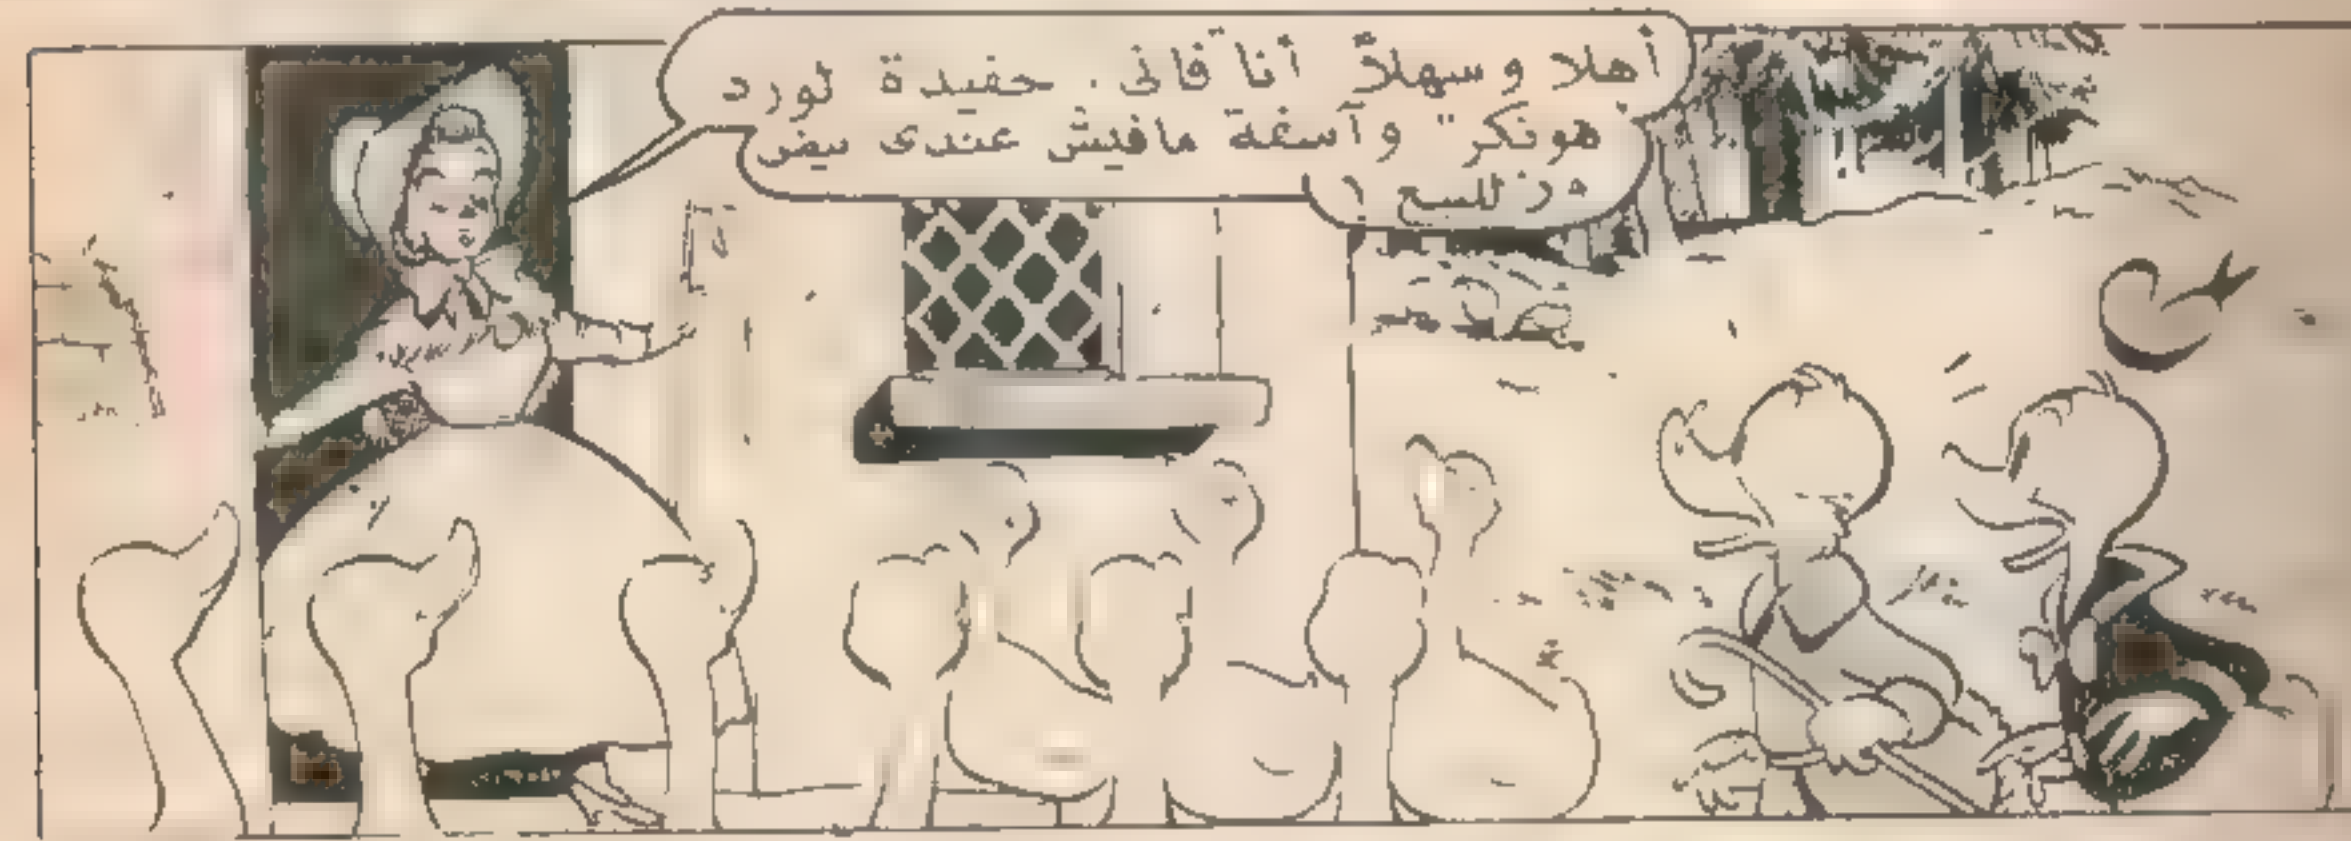 أهلا وسهلاً أنا "فانى" حفيدة لورد
"هونكر" وآسفة مافيش عندى بيض
وز للبيع !